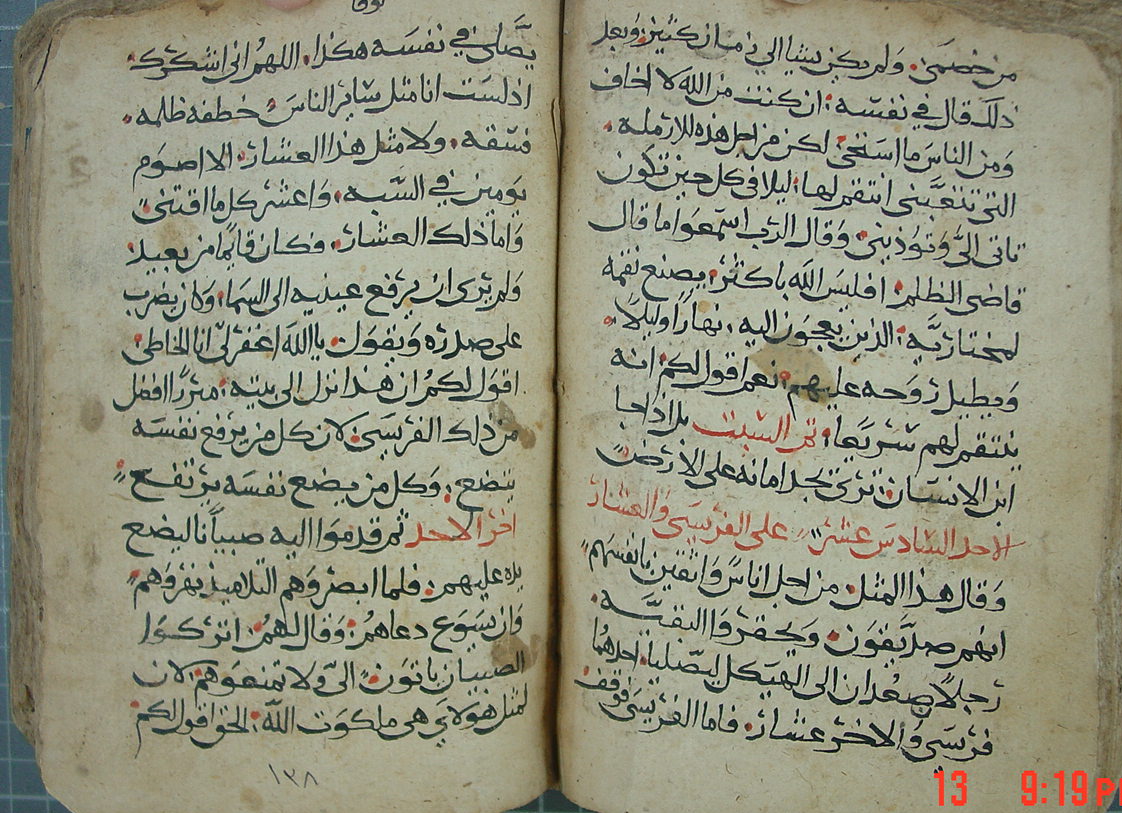 من خصمى. ولم يكن يشا الي زمان كثير: وبعد
ذلك قال في نفسه: ان كنت من الله لا اخاف
ومن الناس ما استحى: لكن من اجل هذه الارمله.
التى تتعبنى انتقم لها: ليلا في كل حين تكون
تاتى الىّ وتوذينى: وقال الرب اسمعوا ما قال
قاضى الظلم: افليس الله باكثر: يصنع نقمه
لمختاريه: الذين يعجون اليه: نهارًا وليلاً.
ويطيل روحه عليهم: نعم اقول لكم: انه
ينتقم لهم سريعا: تم السبت بل اذا جا
ابن الانسان: ترى يجد امانه على الارض
الاحد السادس عشر: على الفريسى والعشار
وقال هذا المثل: من اجل اناس واثقين بانفسهم
انهم صديقون: ويحقروا البقيّه.
رجلاً صعدان الى الهيكل ليصليا: احدهما
فريسى والاخر عشار. فاما الفريسى فوقف
يصّلى في نفسه هكذا. اللهم انى اشكرك.
اذ لست انا مثل سائر الناس: خطفه ظلمه.
فسقه. ولا مثل هذا العشار: الا اصوم
يومين في السبه: واعشر كل ما اقتنى
واما ذلك العشار. فكان قايمًا من بعيد
ولم يرى ان يرفع عينيه الى السما: وكان يضرب
على صدره ويقول: يا الله اغفر لى انا الخاطى:
اقول لكم ان هذا نزل الى بيته: مبررا افضل
من ذلك الفريسى: لان كل من يرفع نفسه
يتضع: وكل من يضع نفسه يرتفع
اخر الاحد ثم قدموا اليه صبيانا ليضع
يده عليهم: فلما ابصروهم التلاميذ نهروهم
وان يسوع دعاهم: وقال لهم: اتركوا
الصبيان ياتون الىّ ولا تمنعوهم: لان
لمثل هولاي هى ملكوت الله: الحق اقول لكم
١٣٨
13 9:19 PM